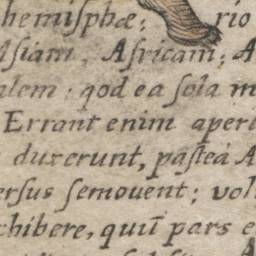 hemisphæ; rio
Asiam, Africam; A
alem: qod ea sola m
Errant enim aper
duxerunt, pasteá A
ersus semouent; vol
chibere, quiū pars e